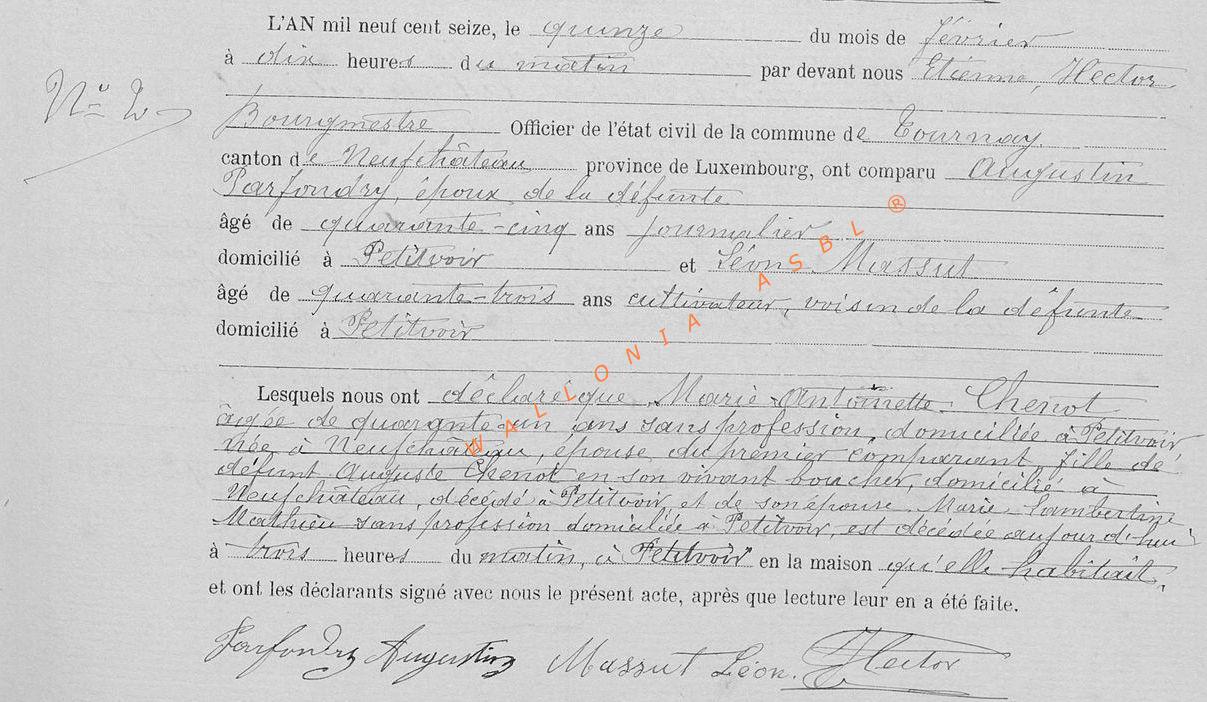 L'AN mil neuf cent seize, le quinze du mois de février
à dix heures du matin par devant nous Etienne, Hector
Nº 2
Bourgmestre Officier de l'état civil de la commune de Tournay.
canton de Neufchâteau province de Luxembourg, ont comparu Augustin
Parfondry, époux de la défunte
âgé de quarante-cinq ans journalier
domicilié à Petitvoir et Léon Massut
âgé de quarante-trois ans cultivateur, voisin de la défunte
domicilié à Petitvoir
WALLONIA ASBL ®
Lesquels nous ont déclaré que Marie-Antoinette Chenot
âgée de quarante-un ans sans profession, domiciliée à Petitvoir
née à Neufchâteau, épouse du premier comparant fille de
défunt Auguste Chenot en son vivant boucher, domicilié à
Neufchâteau, décédé à Petitvoir, et de son épouse Marie-Lambertine
Mathieu sans profession domiciliée à Petitvoir, est décédée aujourd'hui
à trois heures du matin, à Petitvoir en la maison qu'elle habitait,
et ont les déclarants signé avec nous le présent acte, après que lecture leur en a été faite.
Parfondry Augustin Massut Léon. E Hector